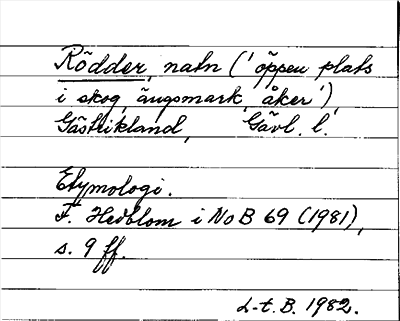 Rödder, natn ('öppen plats
i skog, ängsmark, åker'),
Gästrikland, Gävl. l.
Etymologi.
F. Hedblom i NoB 69 (1981),
s. 9 ff.
L-t. B. 1982.